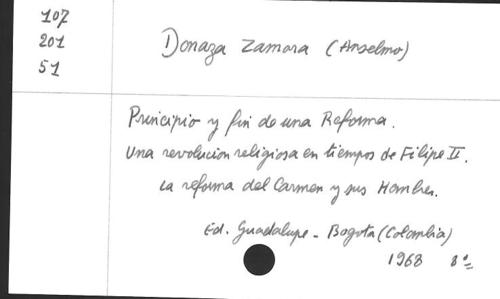 107
201
51
Donaza Zamora (Anselmo)
Principio y fin de una Reforma.
Una revolucion religiosa en tiempos de Filipe II.
La reforma del Carmen y sus Hombres.
Ed. Guadalupe - Bogota (Colombia)
1968 8º